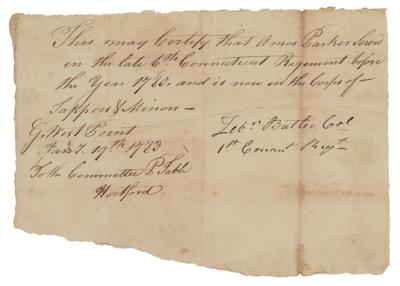 This may Certify that Amos Parker Servd
in the late 6th Connecticut Regiment before
the Year 1780, and is now in the Corps of
Sappors & Minors
West Point
Jany. 19th 1783
Zebn Butler Col
1st Connect Regt
To the Committee P. Table
Hartford